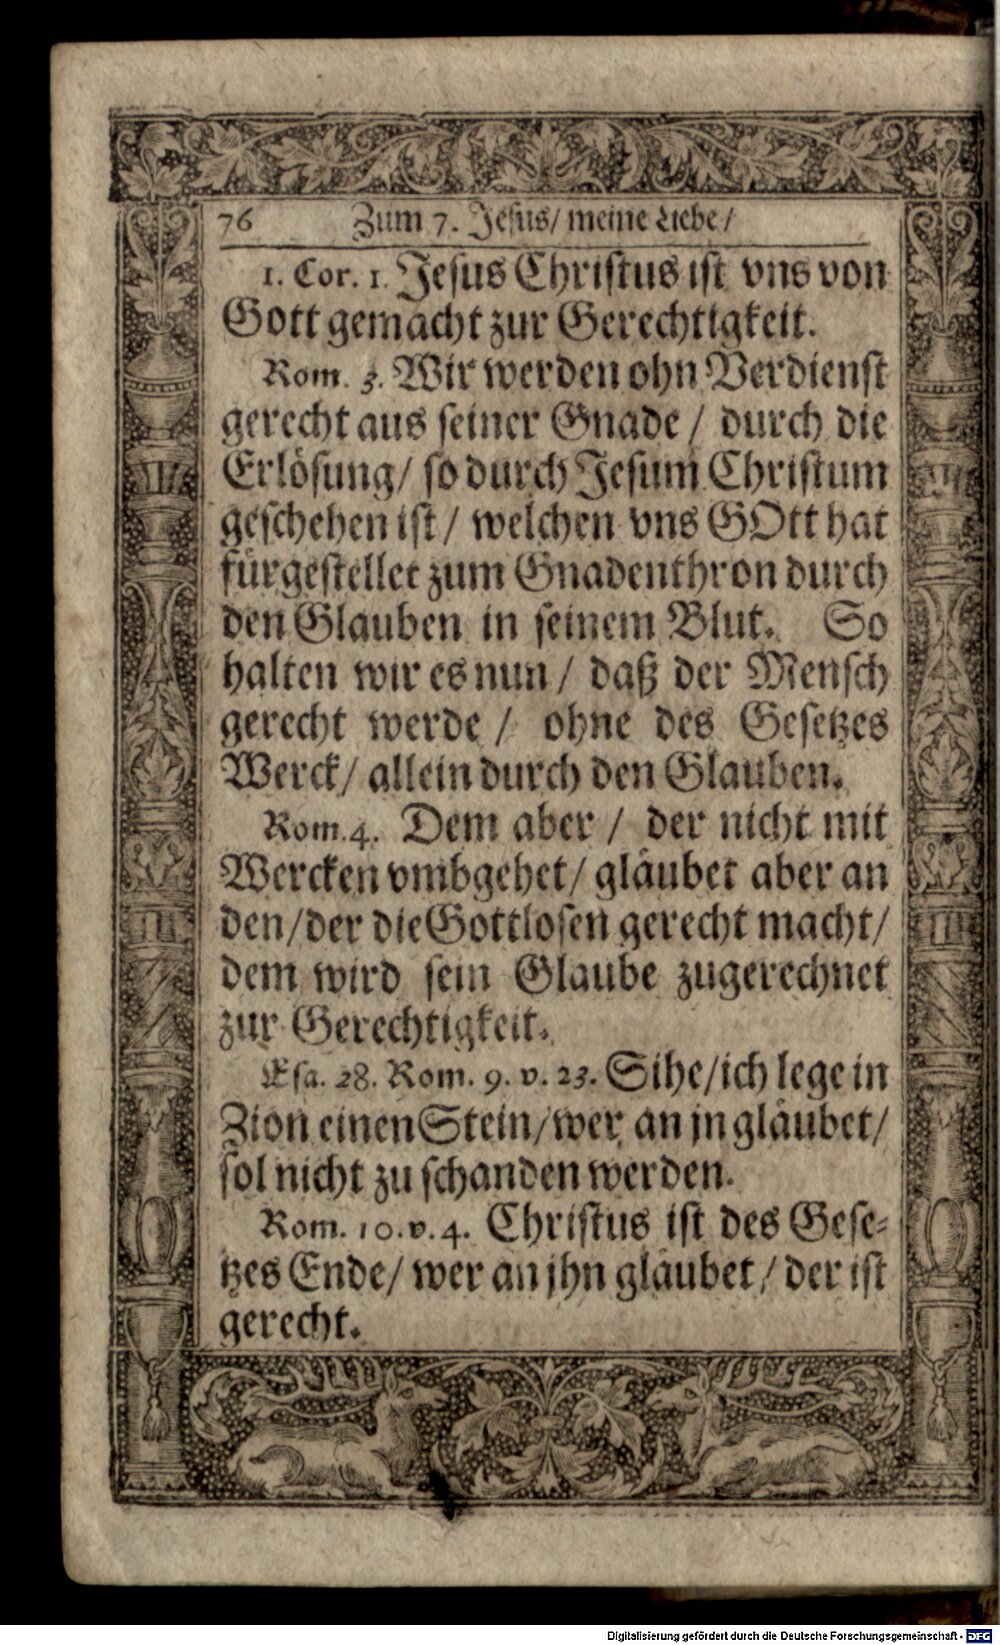 76 Zum 7. Jesus/ meine Liebe/
1. Cor. 1. Jesus Christus ist vns von
Gott gemacht zur Gerechtigkeit.
Rom. 3. Wir werden ohn Verdienst
gerecht aus seiner Gnade / durch die
Erlösung/ so durch Jesum Christum
geschehen ist/ welchen vns GOtt hat
fürgestellet zum Gnadenthron durch
den Glauben in seinem Blut. So
halten wir es nun / daß der Mensch
gerecht werde / ohne des Gesetzes
Werck/ allein durch den Glauben.
Rom. 4. Dem aber / der nicht mit
Wercken vmbgehet/ gläubet aber an
den/ der die Gottlosen gerecht macht/
dem wird sein Glaube zugerechnet
zur Gerechtigkeit.
Esa. 28. Rom. 9. v. 23. Sihe/ ich lege in
Zion einen Stein/ wer an jn gläubet/
sol nicht zu schanden werden.
Rom. 10. v. 4. Christus ist des Gese-
tzes Ende/ wer an jhn gläubet/ der ist
gerecht.
Digitalisierung gefördert durch die Deutsche Forschungsgemeinschaft - DFG